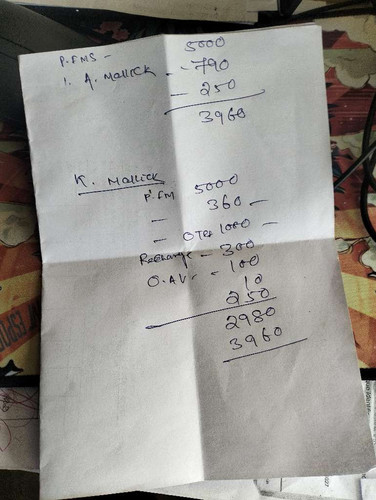 P.FMS - 5000
1. A. Mallick - - 790
- 250
3960
K. Mallick
P.FM 5000
- 360 -
- OTRS 1000 -
Recharge - 300
O.AV - 100
10
250
2980
3960